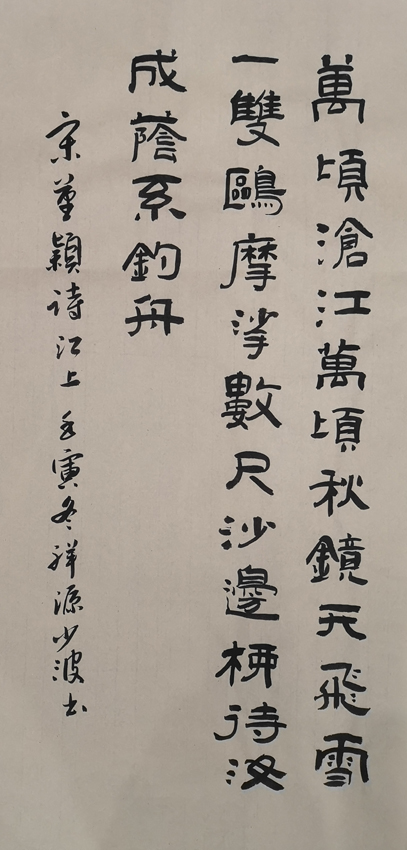 萬頃滄江萬頃秋鏡天飛雪
一雙鷗摩挲數尺沙邊柳待汝
成蔭系釣舟
宋董颖诗江上 壬寅冬祥源少波书